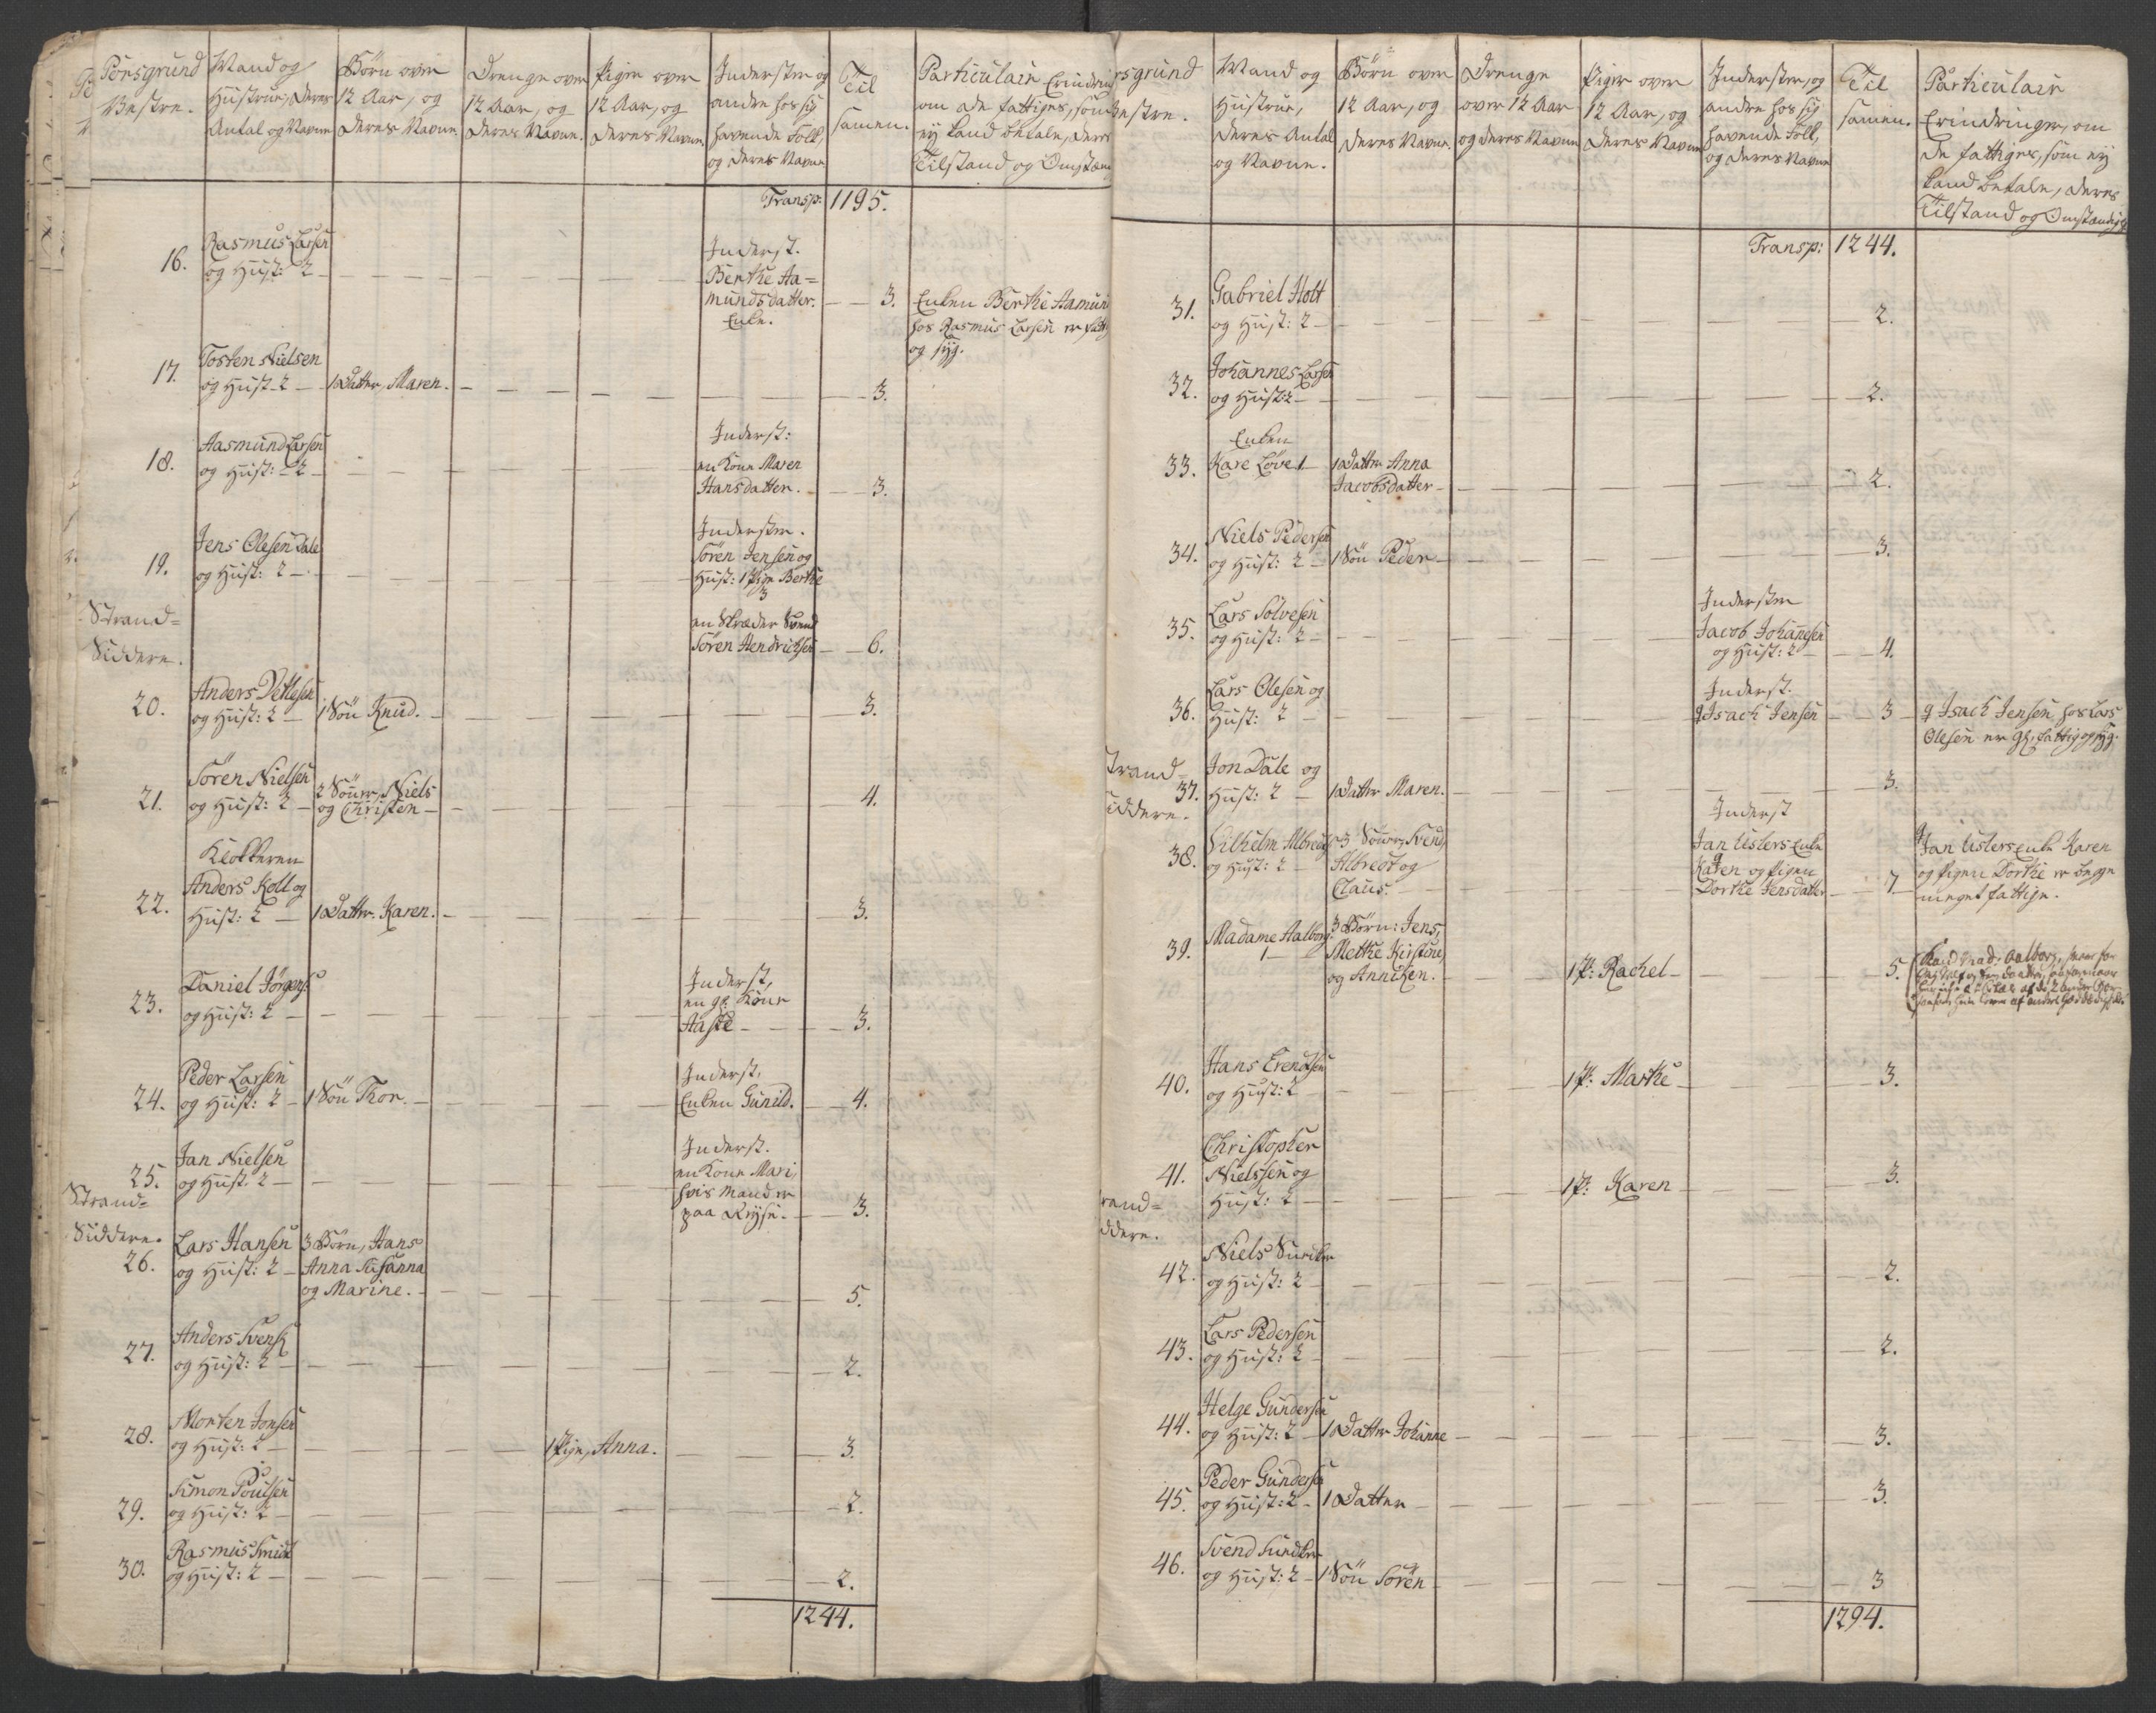 Porsgrund Vestre.
Mand og Hustrue, deres Antal og Navne
Börn over 12 Aar, og deres Navne.
Drenge over 12 Aar, og deres Navne.
Piger over 12 Aar, og deres Navne.
Inderster og andre hos sig havende Folk, og deres Navne
Til samen.
Particulair Erindring om de fattiges, som ej kand betale, deres Tilstand og Omstæn
Transp: 1195.
16. Rasmus Larsen
og Hust: 2 —
Inderst.
Berthe Aa=
mundsdatter.
Enke.
3.
Enken Berthe Aamund
hos Rasmus Larsen er fattig
og syg.
17. Tosten Nielsen
og Hust. 2 — 1 Datter, Maren. — 3.
18. Aasmund Larsen
og Hust: 2 —
Inderst:
en Kone Maren
Hansdatter. — 3.
19. Jens Olesen Dale
og Hust: 2 —
Inderster.
Sören Jensen og
Hust: 1 Pige Berthe
3
en Skræder Svend
Sören Hendrichsen — 6.
Strand=
Siddere.
20. Anders Vetlesen
og Hust: 2 — 1 Sön Knud. — 3.
21. Sören Nielsen
og Hust: 2 — 2 Sönner, Niels
og Christen — 4.
22. Klokkeren
Anders Koll og
Hust: 2 — 1 Datter. Karen. — 3.
23. Daniel Jörgens:
og Hust: 2 —
Inderst,
en gl: Kone
Aaste — 3.
24. Peder Larsen
og Hust: 2 — 1 Sön Thor. —
Inderst,
Enken Gunild. — 4.
25. Jan Nielsen
og Hust. 2 —
Inderst.
en Kone Mari,
hvis Mand er
paa Rejse. — 3.
Strand=
Siddere.
26. Lars Hansen
og Hust: 2 — 3 Börn, Hans
Anna Susanna
og Marine. — 5.
27. Anders Svensk
og Hust: 2 — 2.
28. Morten Jonsen
og Hust: 2 — 1 Pige, Anna. — 3.
29. Simon Poulsen
og Hust: 2 — 2.
30. Rasmus Smidt
og Hust: 2 — 2.
1244.
rsgrund
estre.
Mand og Hustrue, deres Antal og Navne.
Börn over 12 Aar, og deres Navne.
Drenge over 12 Aar og deres Navne
Piger over 12 Aar, og deres Navne
Inderster, og andre hos sig havende Folk, og deres Navne
Til samen.
Particulair Erindringer, om de fattiges, som ej kand betale, deres Tilstand og Omstændigh
Transp: 1244.
31. Gabriel Holt
og Hust: 2 — 2.
32. Johannes Larsen
og Hust: 2 — 2.
33. Enken
Kare Löve 1 — 1 Datter Anna
Jacobsdatter — 2.
34. Niels Pedersen
og Hust: 2 — 1 Sön Peder — 3.
35. Lars Solvesen
og Hust: 2 —
Inderster
Jacob Johannesen
og Hust: 2 — 4.
36. Lars Olesen og
Hust: 2 —
Inderst.
Isach Jensen — 3
Isach Jensen hos Lars
Olesen er gl, fattig og syg.
trand=
iddere.
37. Jon Dale og
Hust: 2 — 1 Datter Maren. — 3.
38. Vilhelm Albredt
og Hust: 2 — 3 Sönner, Svend,
Albredt og
Claus. —
Inderst
Jan Uslers Enke
Karen og Pigen
Dorthe Jensdatter — 7
Jan Uslers Enke Karen
og Pigen Dorthe er begge
meget fattige.
39. Madame Aalborg
1 — 3 Börn: Jens,
Methe Kirstine,
og Anniken. — 1 P: Rachel — 5.
40. Hans Erendtsen
og Hust: 2 — 1 P: Marthe — 3.
41. Christopher
Nielssen og
Hust: 2 — 1 P: Karen — 3.
rand=
ddere.
42. Niels
og Hust: 2 — 2.
43. Lars Pedersen
og Hust: 2 — 2.
44. Helge Gundersen
og Hust: 2 — 1 Datter Johanne — 3.
45. Peder Gundersen
og Hust: 2 — 1 Datter — 3.
46. Svend
og Hust: 2 — 1 Sön Sören — 3
1294.